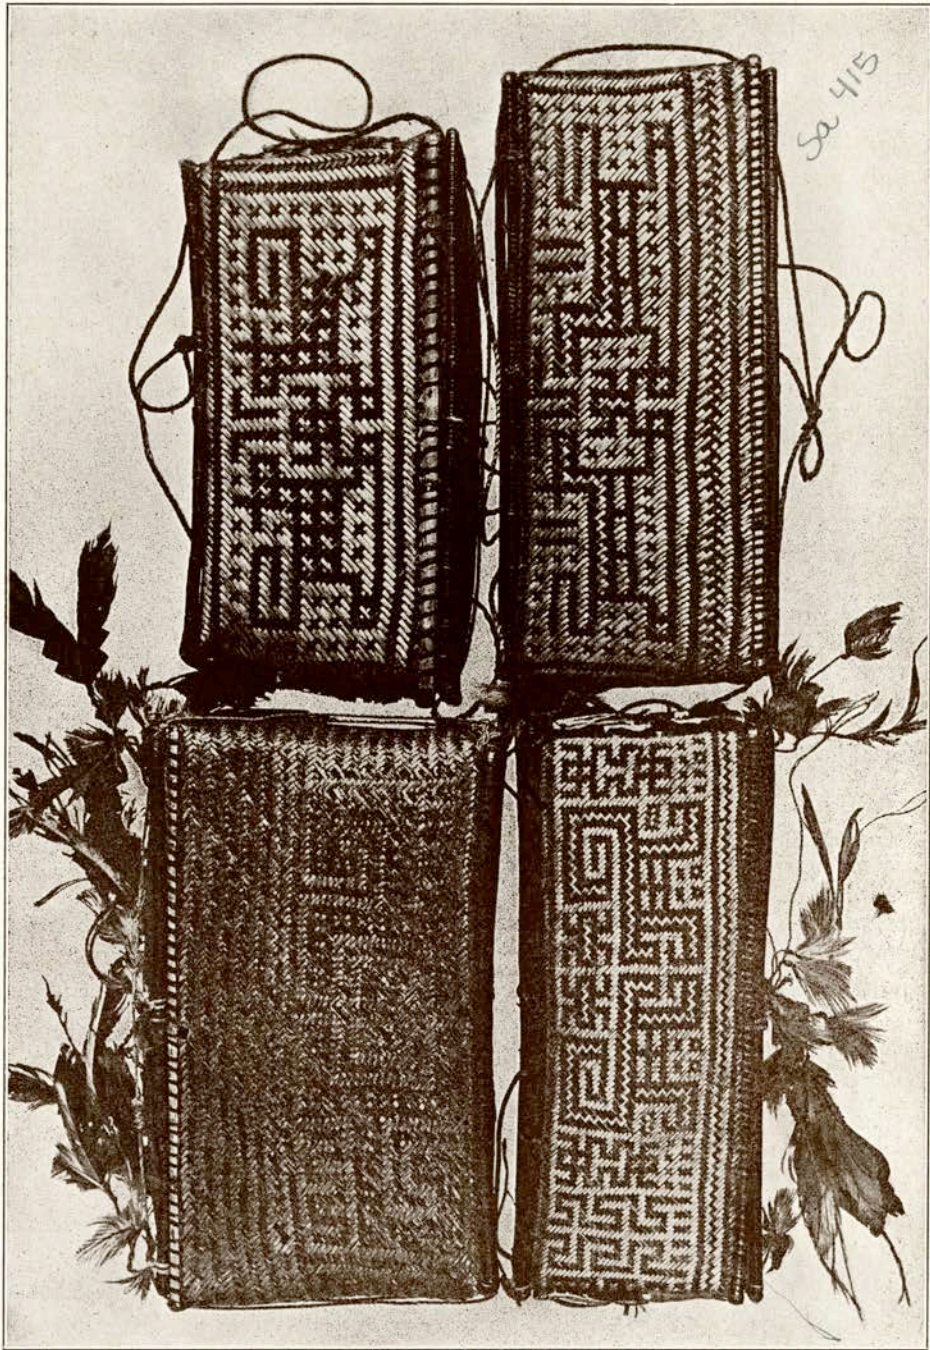 Sa 415